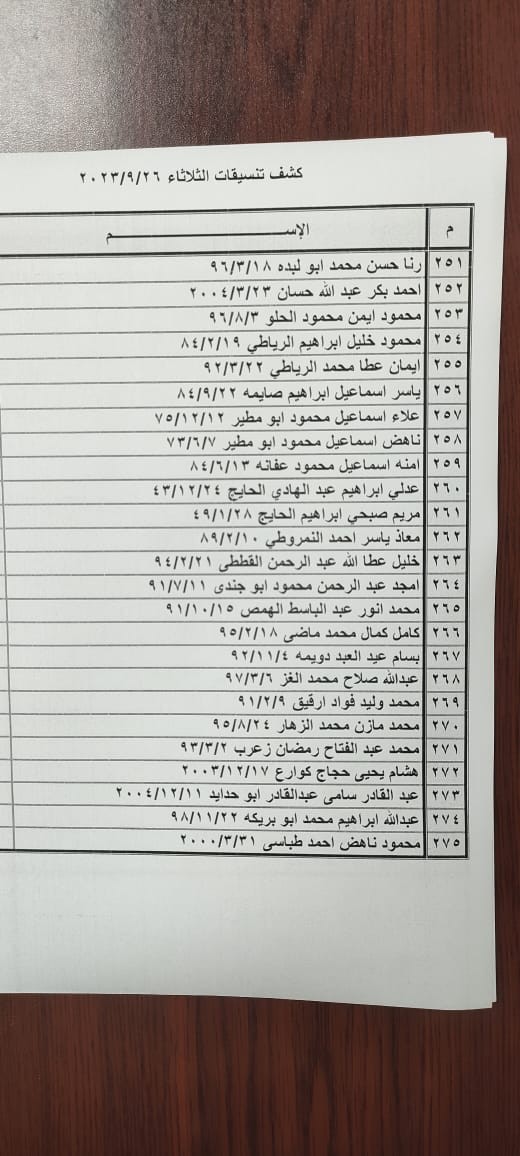 كشف تنسيقات الثلاثاء ٢٠٢٣/٩/٢٦
م الإســـــــــــــم
٢٥١ رنا حسن محمد ابو لبده ٩٦/٣/١٨
٢٥٢ احمد بكر عبد الله حسان ٢٠٠٤/٣/٢٣
٢٥٣ محمود ايمن محمود الحلو ٩٦/٨/٣
٢٥٤ محمود خليل ابراهيم الرياطي ٨٤/٢/١٩
٢٥٥ ايمان عطا محمد الرياطي ٩٢/٣/٢٢
٢٥٦ ياسر اسماعيل ابراهيم صايمه ٨٤/٩/٢٢
٢٥٧ علاء اسماعيل محمود ابو مطير ٧٥/١٢/١٢
٢٥٨ ناهض اسماعيل محمود ابو مطير ٧٣/٦/٧
٢٥٩ امنه اسماعيل محمود عفانه ٨٤/٦/١٣
٢٦٠ عدلي ابراهيم عبد الهادي الحايج ٤٣/١٢/٢٤
٢٦١ مريم صبحي ابراهيم الحايج ٤٩/١/٢٨
٢٦٢ معاذ ياسر احمد النمروطي ٨٩/٢/١٠
٢٦٣ خليل عطا الله عبد الرحمن القططى ٩٤/٢/٢١
٢٦٤ امجد عبد الرحمن محمود ابو جندى ٩١/٧/١١
٢٦٥ محمد انور عبد الباسط الهمص ٩١/١٠/١٥
٢٦٦ كامل كمال محمد ماضى ٩٥/٢/١٨
٢٦٧ بسام عيد العبد دويمه ٩٢/١١/٤
٢٦٨ عبدالله صلاح محمد الغز ٩٧/٣/٦
٢٦٩ محمد وليد فواد ارقيق ٩١/٢/٩
٢٧٠ محمد مازن محمد الزهار ٩٥/٨/٢٤
٢٧١ محمد عبد الفتاح رمضان زعرب ٩٣/٣/٢
٢٧٢ هشام يحيى حجاج كوارع ٢٠٠٣/١٢/١٧
٢٧٣ عبد القادر سامى عبدالقادر ابو حدايد ٢٠٠٤/١٢/١١
٢٧٤ عبدالله ابراهيم محمد ابو بريكه ٩٨/١١/٢٢
٢٧٥ محمود ناهض احمد طباسى ٢٠٠٠/٣/٣١